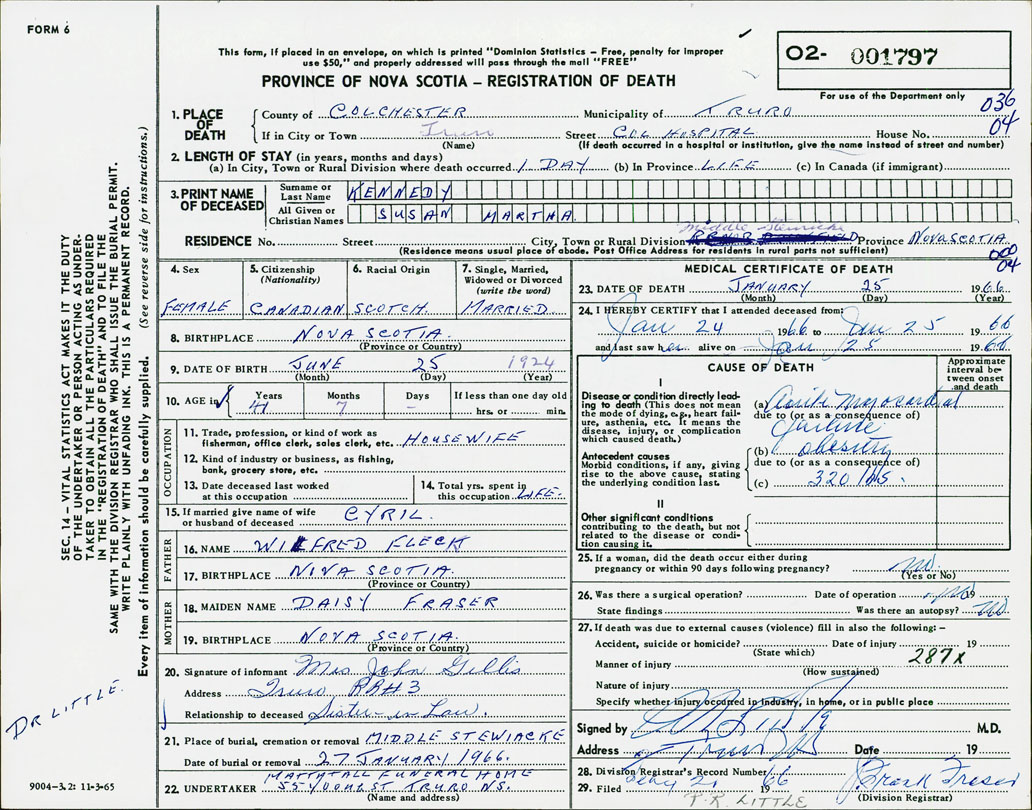 FORM 6
This form, if placed in an envelope, on which is printed "Dominion Statistics – Free, penalty for improper
use $50," and properly addressed will pass through the mail "FREE"
PROVINCE OF NOVA SCOTIA – REGISTRATION OF DEATH
O2- 001797
For use of the Department only
036
04
1. PLACE OF DEATH
County of COLCHESTER Municipality of TRURO
If in City or Town Truro Street COL HOSPITAL House No.
(Name) (If death occurred in a hospital or institution, give the name instead of street and number)
2. LENGTH OF STAY (in years, months and days)
(a) In City, Town or Rural Division where death occurred 1 DAY (b) In Province LIFE (c) In Canada (if immigrant)
3. PRINT NAME OF DECEASED
Surname or Last Name KENNEDY
All Given or Christian Names SUSAN MARTHA
Middle Stewiacke
RESIDENCE No. Street City, Town or Rural Division Province NOVA SCOTIA
(Residence means usual place of abode. Post Office Address for residents in rural parts not sufficient)
000
04
4. Sex
FEMALE
5. Citizenship (Nationality)
CANADIAN
6. Racial Origin
SCOTCH
7. Single, Married, Widowed or Divorced (write the word)
MARRIED
8. BIRTHPLACE NOVA SCOTIA
(Province or Country)
9. DATE OF BIRTH JUNE 25 1924
(Month) (Day) (Year)
10. AGE in
Years Months Days If less than one day old
41 7 – hrs. or min.
OCCUPATION
11. Trade, profession, or kind of work as
fisherman, office clerk, sales clerk, etc. HOUSEWIFE
12. Kind of industry or business, as fishing,
bank, grocery store, etc.
13. Date deceased last worked
at this occupation
14. Total yrs. spent in
this occupation LIFE
15. If married give name of wife
or husband of deceased CYRIL
FATHER
16. NAME WILFRED FLECK
17. BIRTHPLACE NOVA SCOTIA
(Province or Country)
MOTHER
18. MAIDEN NAME DAISY FRASER
19. BIRTHPLACE NOVA SCOTIA
(Province or Country)
20. Signature of informant Mrs John Gillis
Address Truro, RR#3
Relationship to deceased Sister-in-Law.
21. Place of burial, cremation or removal MIDDLE STEWIACKE
Date of burial or removal 27 JANUARY 1966.
22. UNDERTAKER MATTATALL FUNERAL HOME
55 YOUNG ST TRURO NS.
(Name and address)
MEDICAL CERTIFICATE OF DEATH
23. DATE OF DEATH JANUARY 25 1966
(Month) (Day) (Year)
24. I HEREBY CERTIFY that I attended deceased from:
Jan 24 1966 to Jan 25 1966
and last saw her alive on Jan 25 1966
CAUSE OF DEATH
Approximate interval between onset and death
I
Disease or condition directly leading to death (This does not mean the mode of dying, e.g., heart failure, asthenia, etc. It means the disease, injury, or complication which caused death.)
(a) Myocardial
due to (or as a consequence of)
failure
Antecedent causes
Morbid conditions, if any, giving rise to the above cause, stating the underlying condition last.
(b) obesity
due to (or as a consequence of)
(c) 320 lbs.
II
Other significant conditions
contributing to the death, but not related to the disease or condition causing it.
25. If a woman, did the death occur either during
pregnancy or within 90 days following pregnancy? no
(Yes or No)
26. Was there a surgical operation? Date of operation 19
State findings Was there an autopsy? no
27. If death was due to external causes (violence) fill in also the following: –
Accident, suicide or homicide? Date of injury 19
(State which)
287X
Manner of injury
(How sustained)
Nature of injury
Specify whether injury occurred in industry, in home, or in public place
Signed by M.D.
Address Truro NS Date 19
28. Division Registrar's Record Number
29. Filed 19 66 Frank Fraser
(Division Registrar)
T.R. LITTLE
DR LITTLE.
SEC. 14 – VITAL STATISTICS ACT MAKES IT THE DUTY
OF THE UNDERTAKER OR PERSON ACTING AS UNDER-
TAKER TO OBTAIN ALL THE PARTICULARS REQUIRED
IN THE "REGISTRATION OF DEATH" AND TO FILE THE
SAME WITH THE DIVISION REGISTRAR WHO SHALL ISSUE THE BURIAL PERMIT.
WRITE PLAINLY WITH UNFADING INK. THIS IS A PERMANENT RECORD.
Every item of information should be carefully supplied. (See reverse side for instructions.)
9004-3.2: 11-3-65